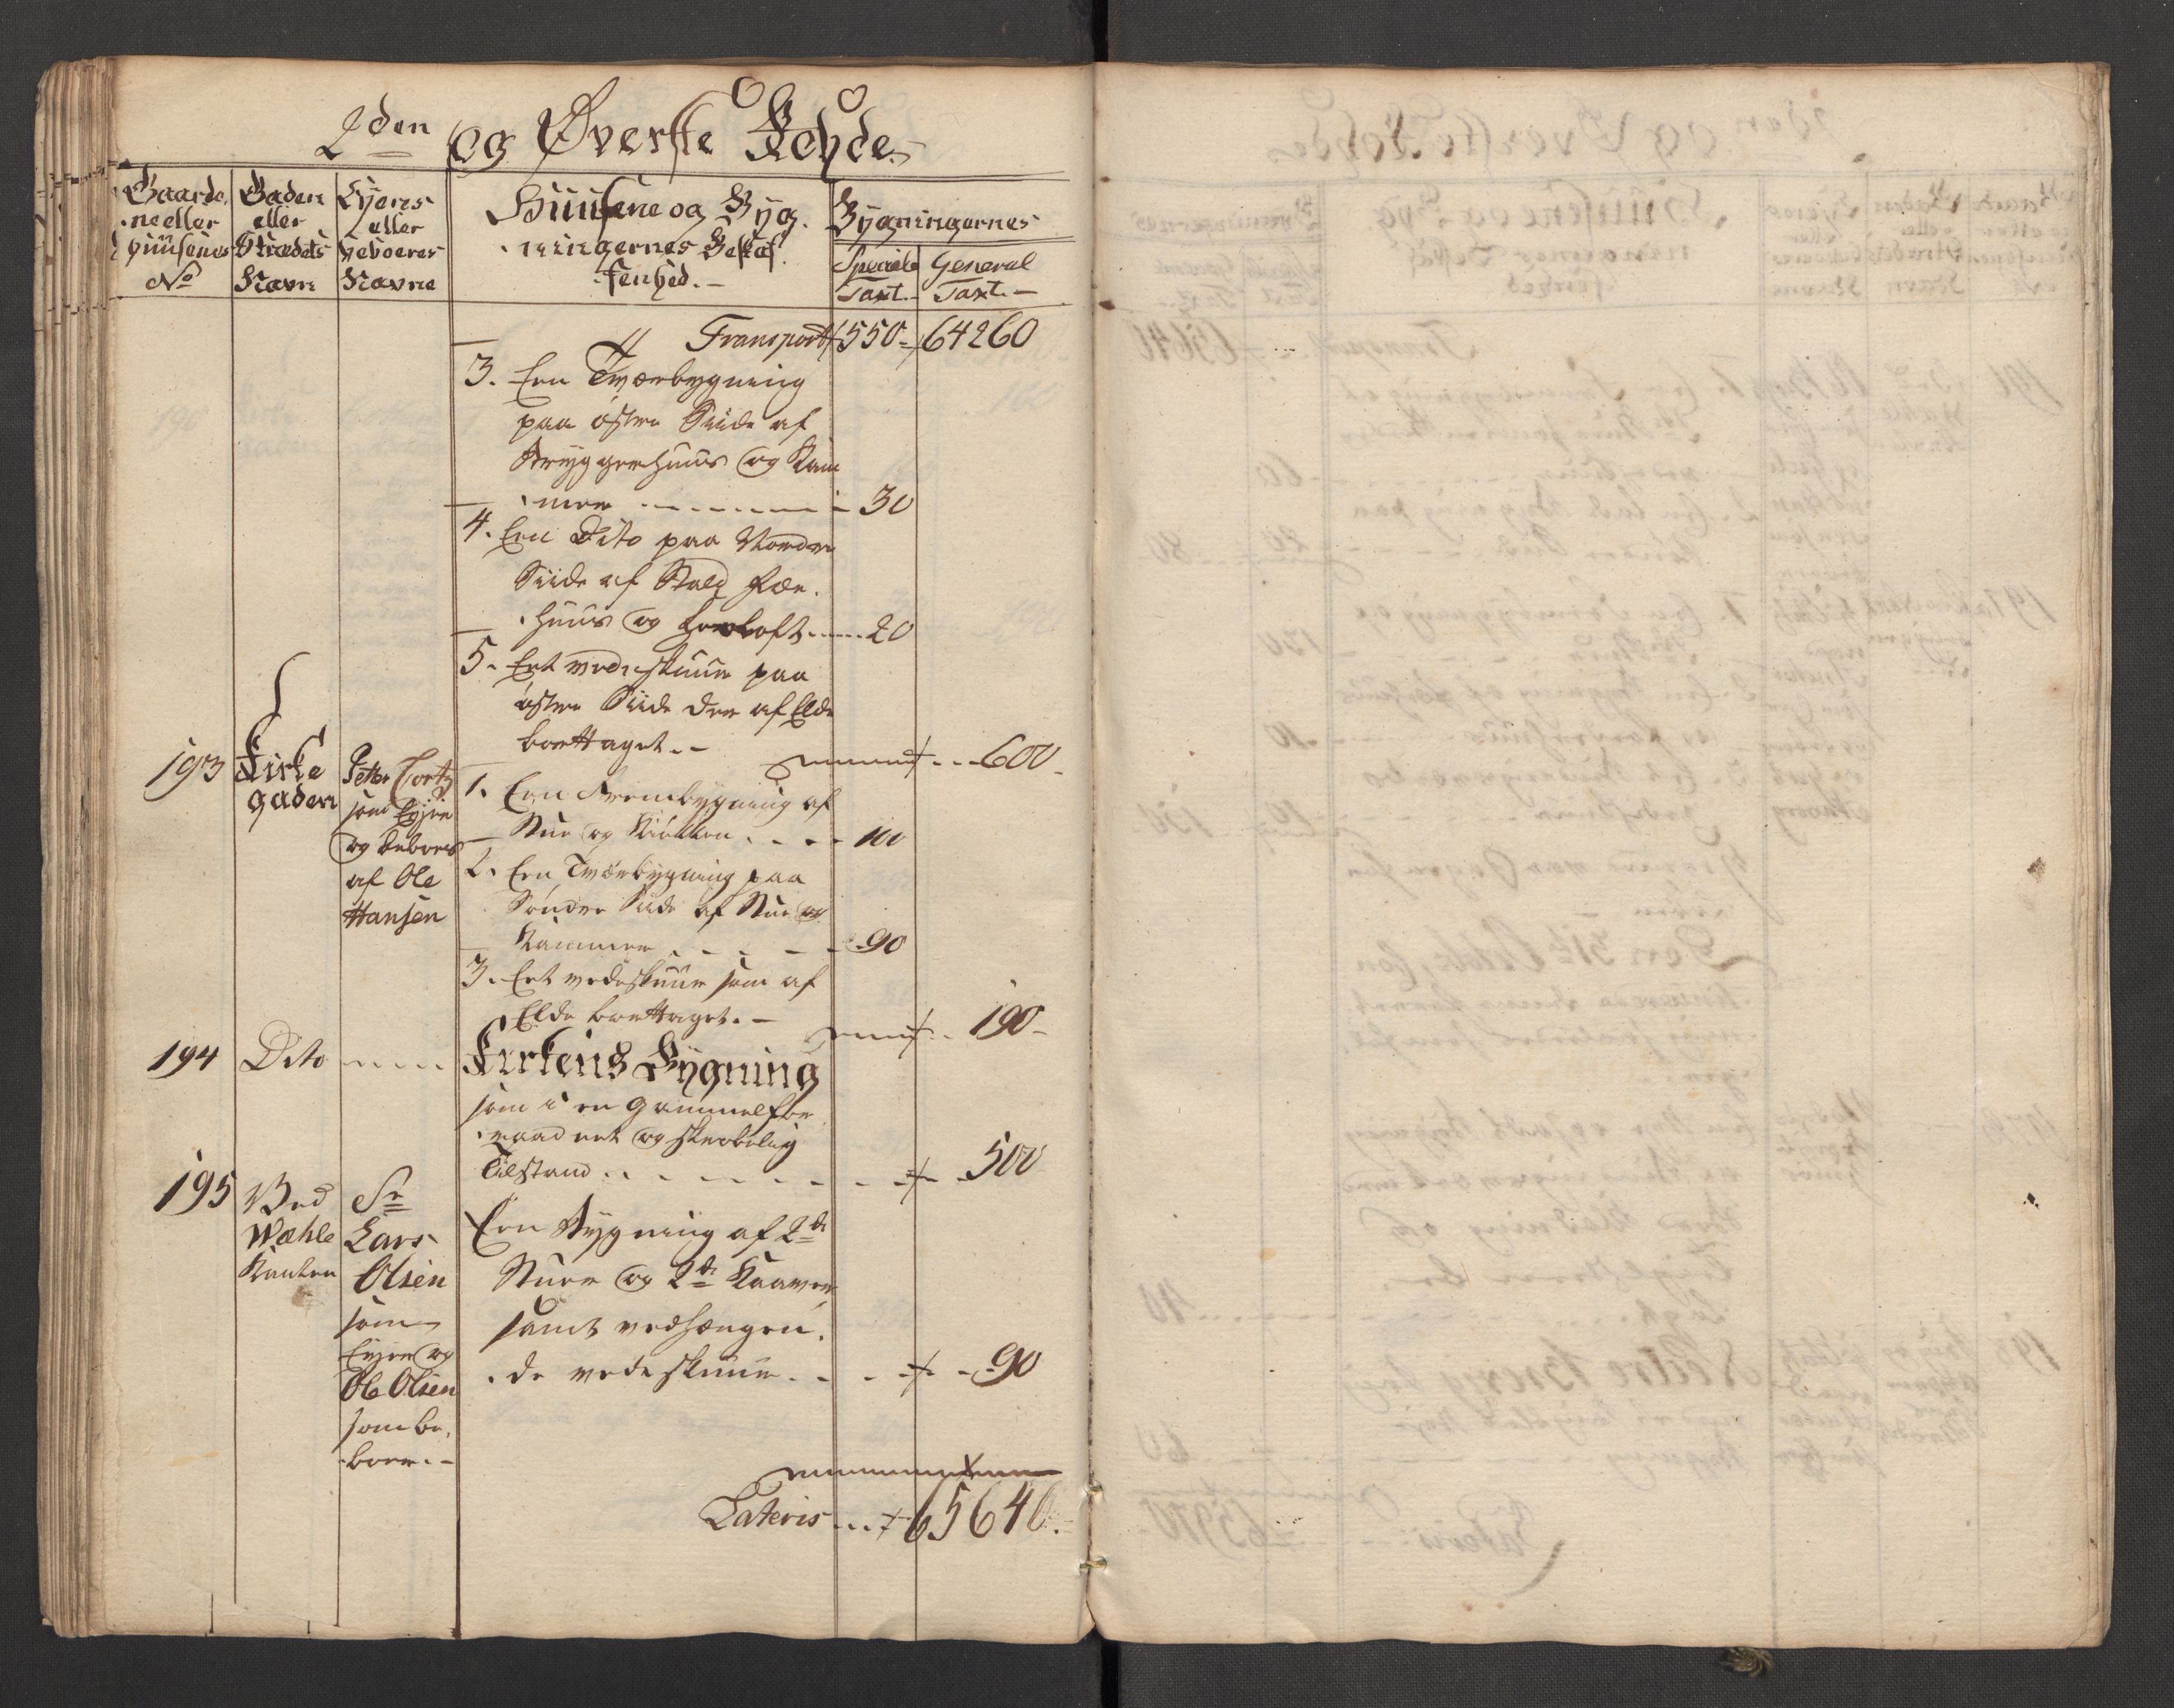 2den og Øverste Rohde.
Gaarde,
ne eller
Huusenes
No
Gaden
eller
Strædets
Navn
Eyeres
eller
beboeres
Navne
Huusene og Byg,
ningernes Beskaf,
fenhed.
Bygningernes
Speciale
Taxt.
General
Taxt.
Transport 550 64260
3. Een Tværbygning
paa östre Siide af
Bryggerhuus og Kam
mer 30
4. Een Dito paa Nordre
Siide af Stald Fæe,
huus og Høeloft 20
5. Eet vedeskuur paa
östre Siide der af Elde
borttaget. 600
193 Kirke
gaden
Petter Cortz
som Eyer
og beboes
af Ole
Hansen
1. Een Frembygning af
Stue og Kiökken 100
2. Een Tværbygning paa
Sönder Siide af Stue og
Kammer 90
3. Eet vedeskuur som af
Elde borttaget. 190
194 Dito
Kirkens Bygning
som i en gammel for
raadnet og skrøbelig
Tilstand 500
195 Ved
Wæhle
Kanten
Sr
Lars
Olsen
som
Eyer og
Ole Olsen
som be,
boer.
Een Bygning af 2de
Stuer og 2de Kaaver
samt vedhængen,
de vedeskuur 90
Lateris 65640.